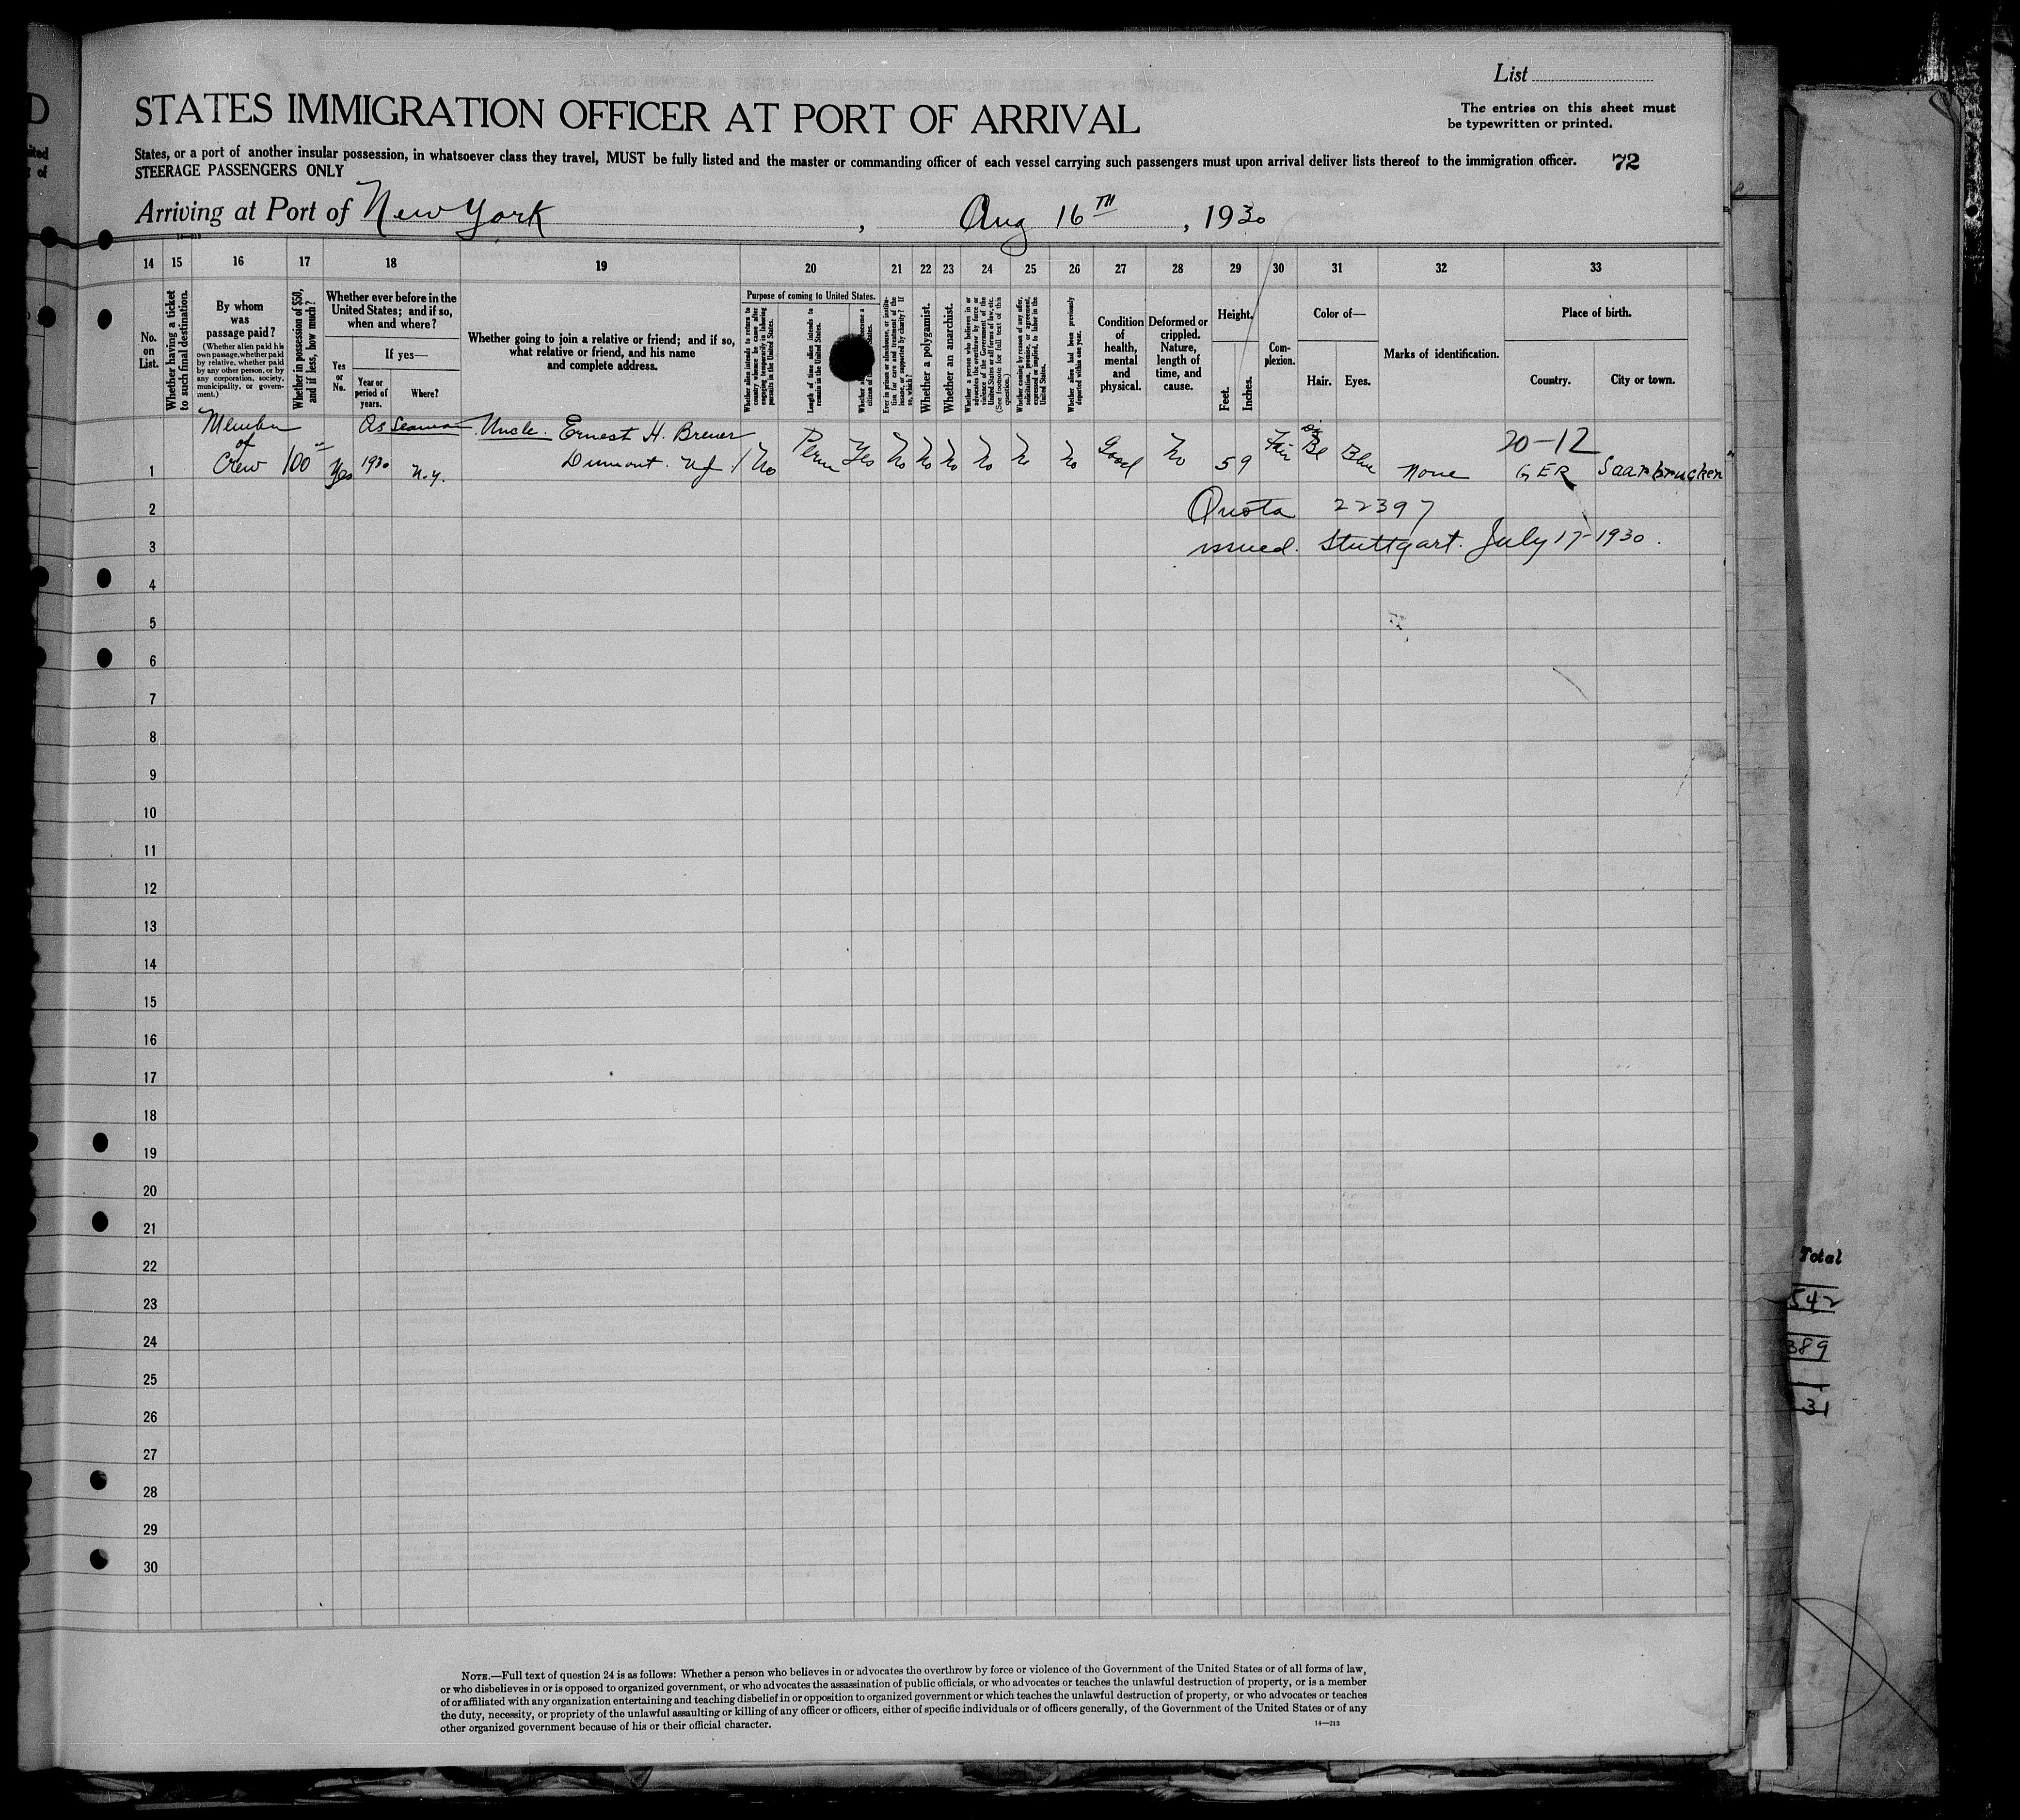 List
STATES IMMIGRATION OFFICER AT PORT OF ARRIVAL
The entries on this sheet must
be typewritten or printed.
States, or a port of another insular possession, in whatsoever class they travel, MUST be fully listed and the master or commanding officer of each vessel carrying such passengers must upon arrival deliver lists thereof to the immigration officer. 72
STEERAGE PASSENGERS ONLY
Arriving at Port of New York, Aug 16TH, 1930
14 15 16 17 18 19 20 21 22 23 24 25 26 27 28 29 30 31 32 33
No. on List.
Whether having a ticket to such final destination.
By whom was passage paid?
(Whether alien paid his own passage, whether paid by relative, whether paid by any other person, or by any corporation, society, municipality, or government.)
Whether in possession of $50, and if less, how much?
Whether ever before in the United States; and if so, when and where?
Yes or No.
If yes—
Year or period of years.
Where?
Whether going to join a relative or friend; and if so, what relative or friend, and his name and complete address.
Purpose of coming to United States.
Whether alien intends to return to country whence he came after engaging temporarily in laboring pursuits in the United States.
Length of time alien intends to remain in the United States.
Ever in prison or almshouse, or institution for care and treatment of the insane, or supported by charity? If so, which?
Whether a polygamist.
Whether an anarchist.
Whether a person who believes in or advocates the overthrow by force or violence of the Government of the United States or all forms of law, etc. (See footnote for full text of this question.)
Whether coming by reason of any offer, solicitation, promise, or agreement, expressed or implied, to labor in the United States.
Whether alien had been previously deported within one year.
Condition of health, mental and physical.
Deformed or crippled. Nature, length of time, and cause.
Height.
Feet.
Inches.
Complexion.
Color of—
Hair.
Eyes.
Marks of identification.
Place of birth.
Country.
City or town.
Member As Seaman Uncle. Ernest H. Breuer 20-12
1 of Crew 100 Yes 1930 N.Y. Dumont. NJ No Perm Yes No No No No No No Good No 5 9 Fair Bl Blue None GER Saarbrucken
2 Quota 22397
3 issued. Stuttgart. July 17-1930.
4
5
6
7
8
9
10
11
12
13
14
15
16
17
18
19
20
21
22
23
24
25
26
27
28
29
30
NOTE.—Full text of question 24 is as follows: Whether a person who believes in or advocates the overthrow by force or violence of the Government of the United States or of all forms of law,
or who disbelieves in or is opposed to organized government, or who advocates the assassination of public officials, or who advocates or teaches the unlawful destruction of property, or is a member
of or affiliated with any organization entertaining and teaching disbelief in or opposition to organized government or which teaches the unlawful destruction of property, or who advocates or teaches
the duty, necessity, or propriety of the unlawful assaulting or killing of any officer or officers, either of specific individuals or of officers generally, of the Government of the United States or of any
other organized government because of his or their official character.
14—213
Total
542
389
31